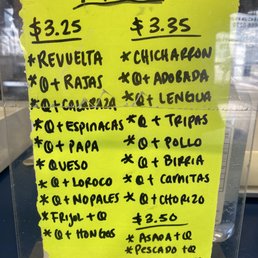 $3.25
*REVUELTA
*Q+RAJAS
*Q+CALABAZA
*Q+ESPINACAS
*Q+PAPA
*QUESO
*Q+LOROCO
*Q+NOPALES
*FRIJOL+Q
*Q+HONGOS
$3.35
*CHICHARRON
*Q+ADOBADA
*Q+LENGUA
*Q+TRIPAS
*Q+POLLO
*Q+BIRRIA
*Q+CARNITAS
*Q+CHORIZO
$3.50
*ASADA+Q
*PESCADO+Q